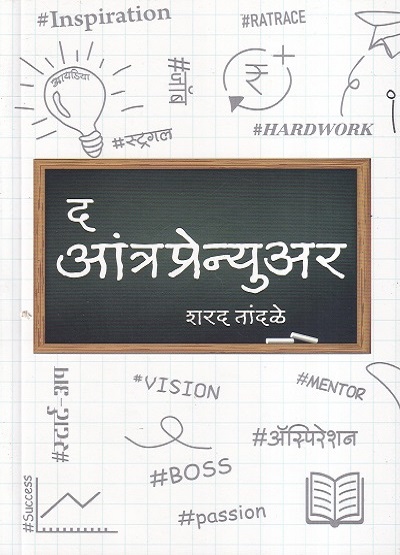 #Inspiration
#RATRACE
आयडिया
#जॉब
₹
#स्ट्रगल
#HARDWORK
द
आंत्रप्रेन्युअर
शरद तांदळे
#स्टार्ट-अप
#VISION
#MENTOR
#ॲस्पिरेशन
#BOSS
#Success
#passion